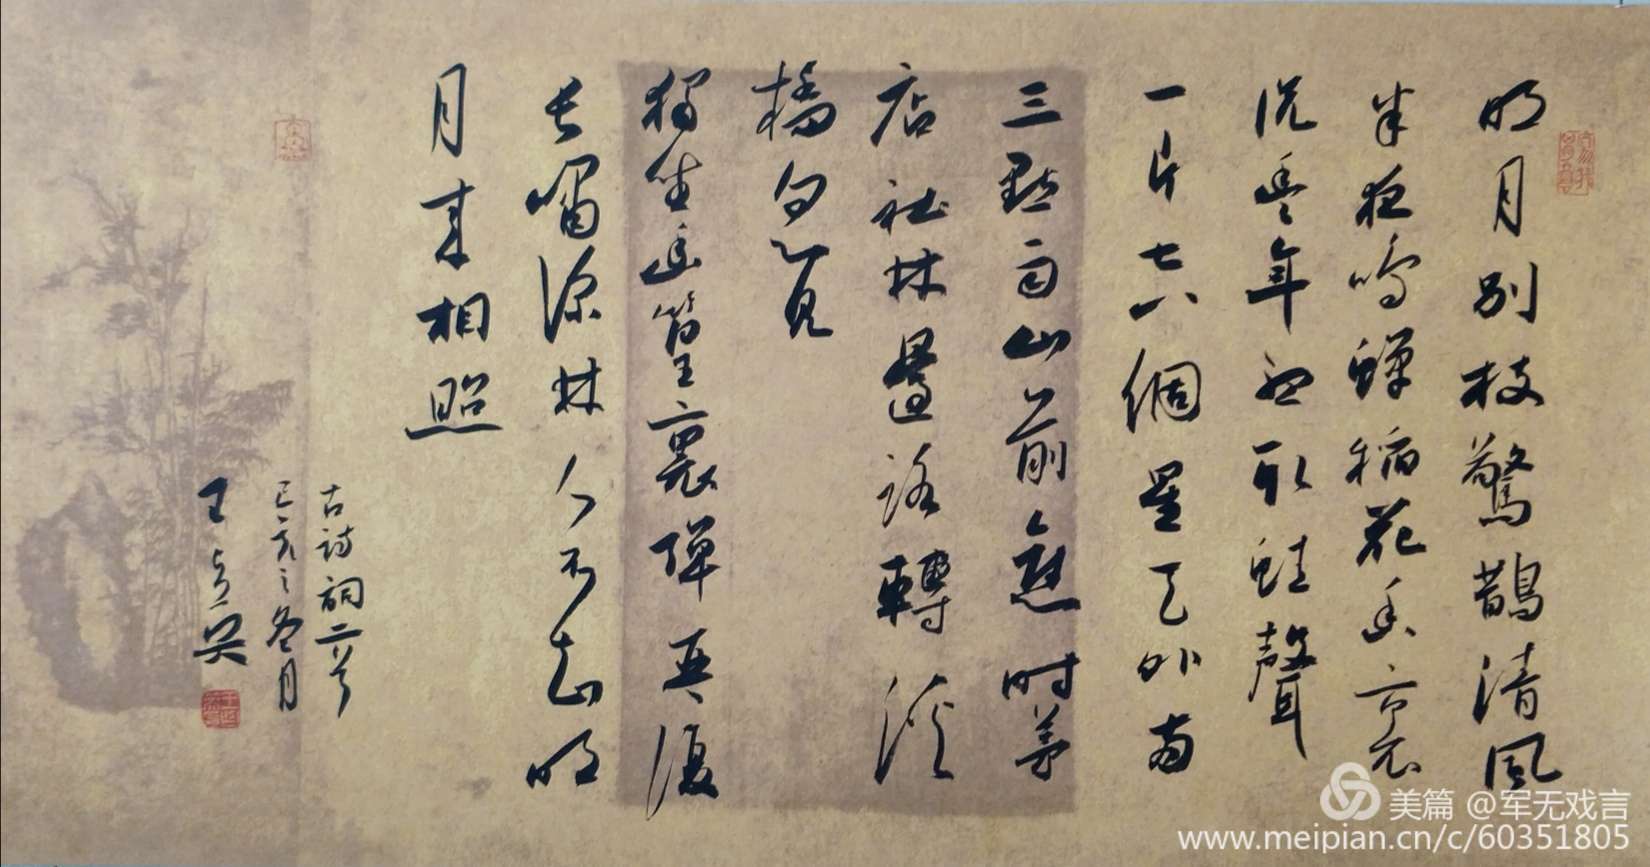 明月别枝驚鵲清風
半夜鳴蟬稻花香裏
说豐年聽取蛙聲
一片七八個星天外兩
三點雨山前舊時茅
店社林邊路轉溪
橋忽見
獨坐幽篁裏彈琴復
長嘯深林人不知明
月來相照
古诗詞二首
己亥之冬月
王
美篇 @军无戏言
www.meipian.cn/c/60351805